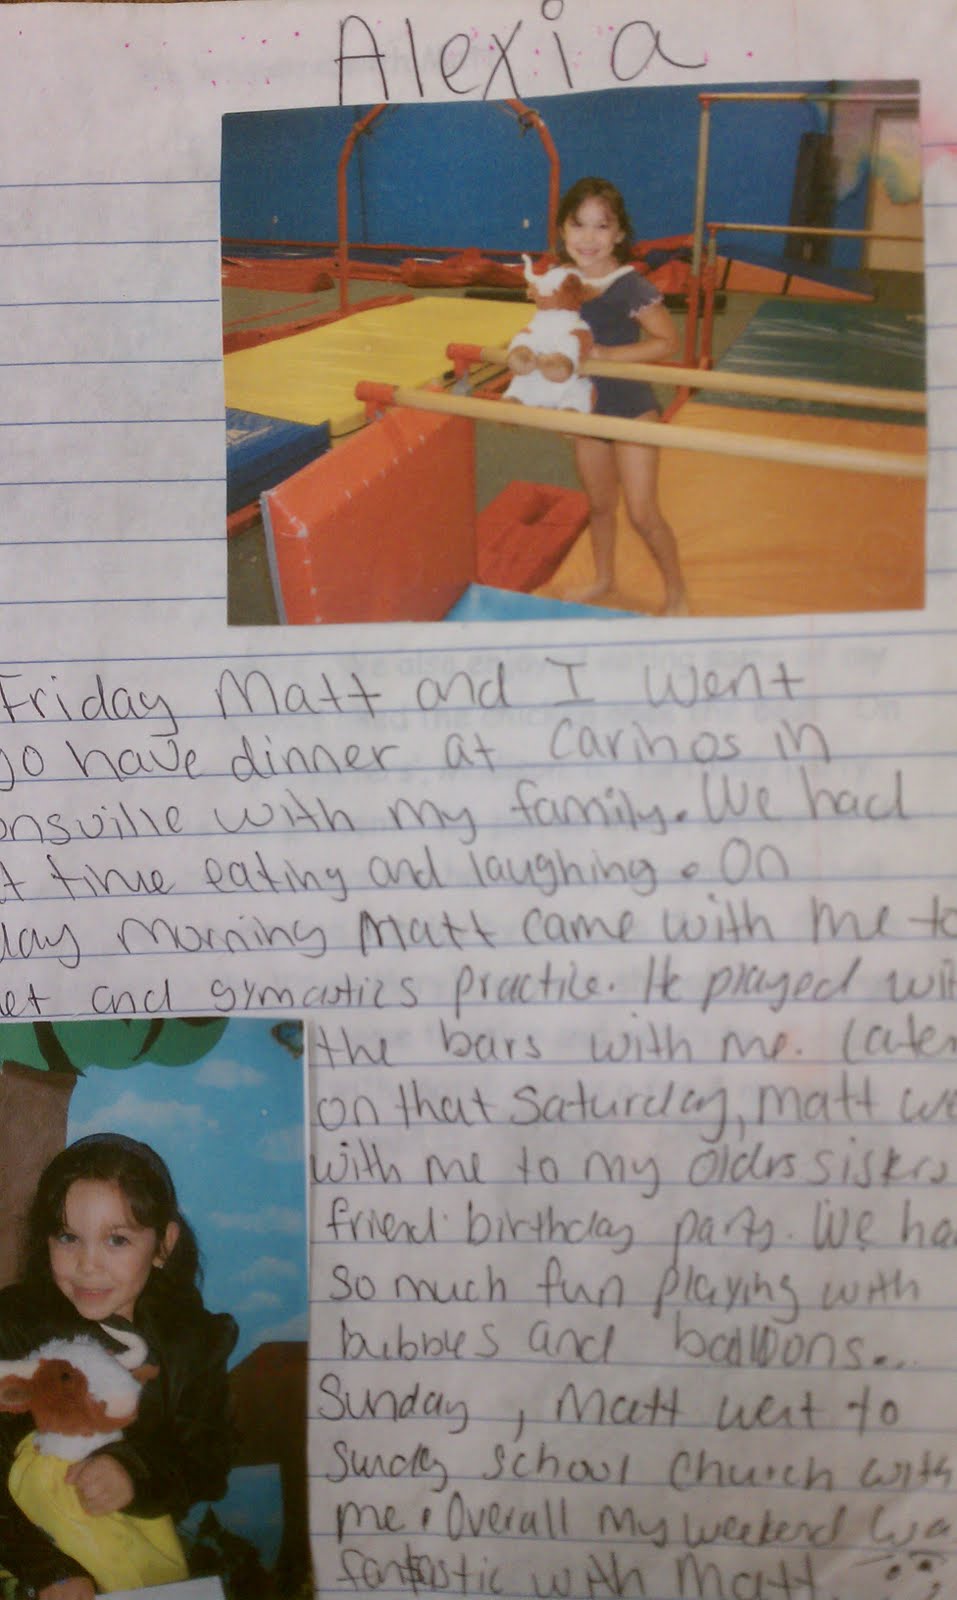 Alexia
Friday Matt and I went
go have dinner at Carinos in
onsville with my family. We had
t time eating and laughing. On
day morning Matt came with me to
et and gymastics practice. He played wit
the bars with me. Later
on that Saturday, Matt we
with me to my olders sisters
friend birthday party. We ha
so much fun playing with
bubbles and balloons...
Sunday, Matt went to
Sunday school church with
me. Overall my weekend wa
fantastic with Matt.